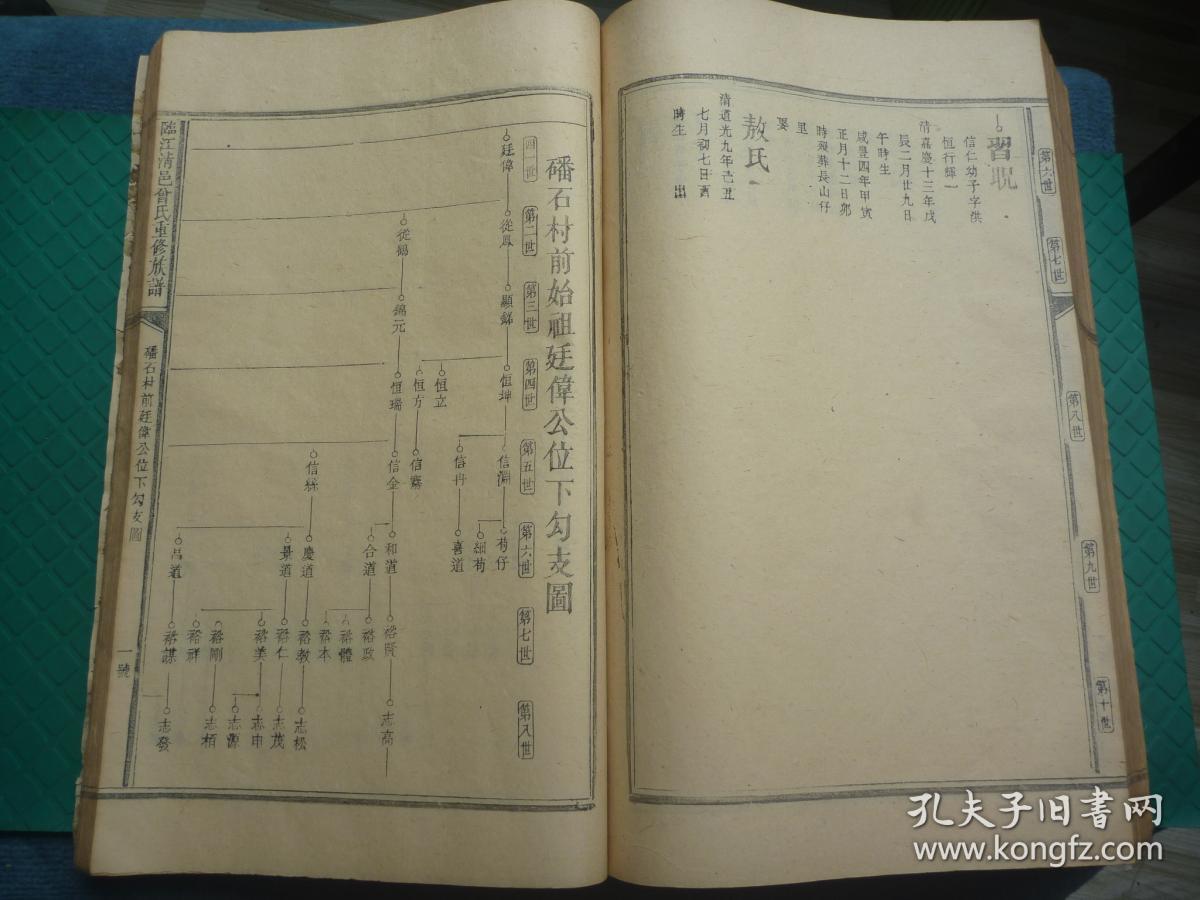 第六世
第七世
第八世
第九世
第十世
習
信仁幼子字供
恒行輝一
清嘉慶十三年戊
辰二月廿九日
午時生
咸豊四年甲寅
正月十二日卯
時歿葬長山仔
里
娶
敖氏一
清道光九年己丑
七月初七日酉
時生 出
磻石村前始祖廷偉公位下勾支圖
第二世
第三世
第四世
第五世
第六世
第七世
第八世
廷偉
從鳳
顯銘
恒坤
信淵
苟仔
細苟
信冉
喜道
恒立
恒方
信齋
從鶴
錦元
恒瑞
信金
和道
裕隆
志高
合道
裕政
裕體
裕本
信縣
慶道
裕教
志松
景道
裕仁
志茂
裕美
志申
志源
裕剛
志栢
裕祥
昌道
裕謀
志發
臨江清邑曾氏重修族譜
磻石村前廷偉公位下勾支圖
一號
孔夫子旧书网
www.kongfz.com